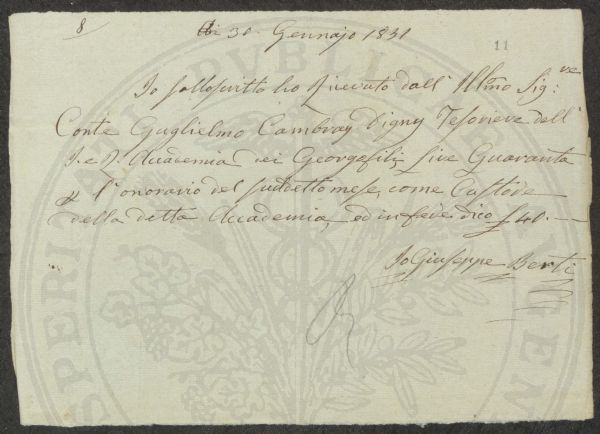 8
Adi 30. Gennajo 1831
11
Io sottoscritto ho Ricevuto dall' Illmo Sig:re
Conte Guglielmo Cambray Digny Tesoriere dell'
I. e R. Accademia dei Georgofili Lire Quaranta
p l'onorario del suddetto mese, come Custode
della detta Accademia, ed in fede dico £ 40.—
Io Giuseppe Berti